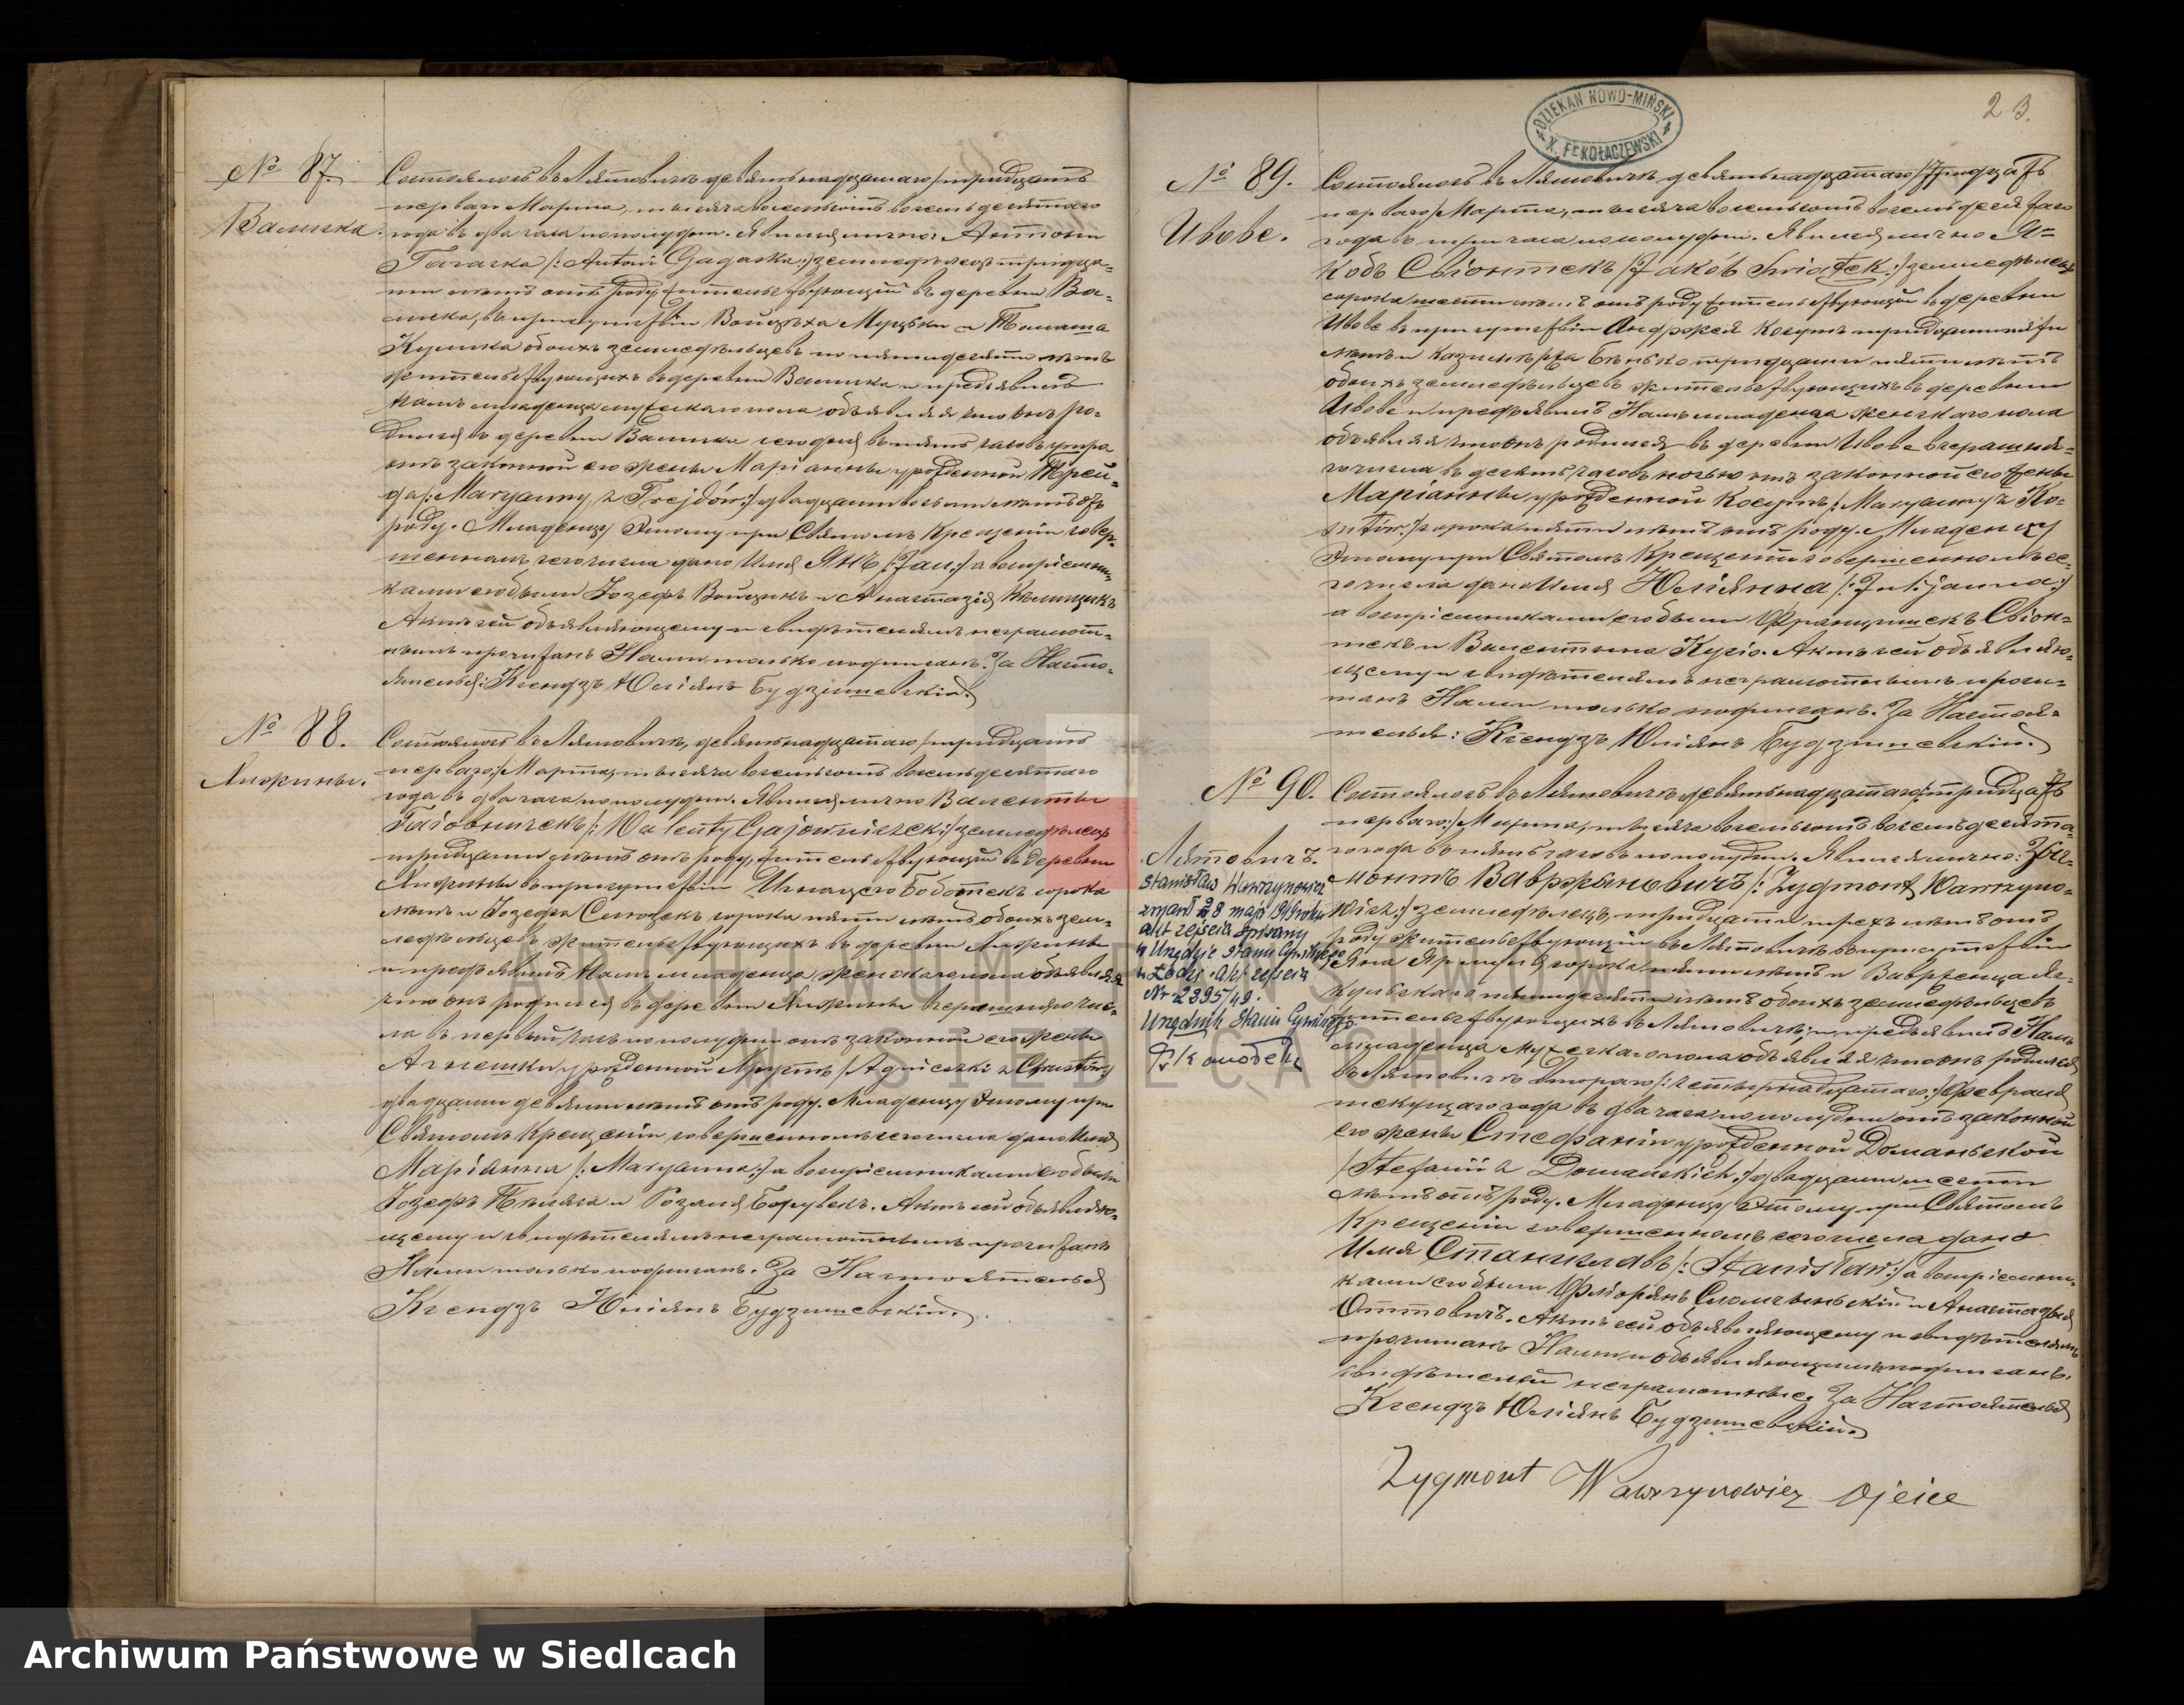 № 87.
Валиска.
Состоялось въ Лятовичъ девятьнадцатаго /тридцать
перваго Марта, тысяча восемьсотъ восемьдесятаго
года въ два часа пополудни. Явился лично: Антони
Гагаска /: Antoni Gagaska:/ земледѣлецъ тридца-
ти лѣтъ отъ роду жительствующій въ деревни Ва-
лиска, въ присутствіи Войцѣха Мурцьки и Томаша
Кулика обоихъ земледѣльцевъ по пятидесяти лѣтъ
жительствующихъ въ деревни Валиска и предъявилъ
Намъ младенца мужескаго пола объявляя что онъ ро-
дился въ деревни Валиска сегодня въ пять часовъ утра
отъ законной его жены Маріанны урожденной Трей-
да /: Maryanny z Trejdów:/ двадцати восьми лѣтъ отъ
роду. Младенцу этому при Святомъ Крещеніи совер-
шенномъ сего числа дано Имя Янъ /: Jan:/ а воспріемни-
ками его были Іозефъ Войцикъ и Анастазія
Актъ сей объявляющему и свидѣтелямъ неграмот-
нымъ прочитанъ Нами только подписанъ. За Насто-
ятеля: Ксендзъ Юліянъ Будзишевскій.
№ 88.
Анжины.
Состоялось въ Лятовичъ, девятьнадцатаго /тридцать
перваго:/ Марта, тысяча восемьсотъ восемьдесятаго
года въ два часа пополудни. Явился лично Валенты
Гаіовничекъ /: Walenty Gajowniczek:/ земледѣлецъ
тридцати лѣтъ отъ роду, жительствующій въ деревни
Анжины въ присутствіи Игнацего Боботекъ сорока
лѣтъ и Іозефа сорока пяти лѣтъ обоихъ зем-
ледѣльцевъ жительствующихъ въ деревни Анжины
и предъявилъ Намъ младенца женскаго пола объявляя
что онъ родился въ деревни Анжины вчерашняго чис-
ла въ первый часъ пополудни отъ законной его жены
Агнешки урожденной Хрустъ /Agnieszki z Chrustów/
двадцати девяти лѣтъ отъ роду. Младенцу этому при
Святомъ Крещеніи совершенномъ сего числа дано Имя
Маріанна /: Maryanna:/ а воспріемниками его были
Іозефъ и Розалія. Актъ сей объявляю-
щему и свидѣтелямъ неграмотнымъ прочитанъ
Нами только подписанъ. За Настоятеля
Ксендзъ Юліянъ Будзишевскій.
DZIEKAN NOWO-MIŃSKI
X. Fr KOŁACZEWSKI
23.
№ 89.
Ивове.
Состоялось въ Лятовичъ девятьнадцатаго /Тридцать
перваго/ Марта, тысяча восемьсотъ восемьдесятаго
года въ три часа пополудни. Явился лично Я-
кобъ Свіонтекъ /Jakób Swiątek:/ земледѣлецъ
сорока шести лѣтъ отъ роду жительствующій въ деревни
Ивове въ присутствіи Анджея Косутъ тридцати пяти
лѣтъ и Казимѣржа Бѣнько тридцати пяти лѣтъ
обоихъ земледѣльцевъ жительствующихъ въ деревни
Ивове и предъявилъ Намъ младенца женскаго пола
объявляя что онъ родился въ деревни Ивове вчерашня-
го числа въ десять часовъ ночью отъ законной его жены
Маріанны, урожденной Косутъ /: Maryanny z Ko-
sutów:/ сорока пяти лѣтъ отъ роду. Младенцу
этому при Святомъ Крещеніи совершенномъ се-
го числа дано Имя Юліянна /: Juljanna:/
а воспріемниками его были Францишекъ Свіон-
текъ и Валентына Куго. Актъ сей объявляю-
щему и свидѣтелямъ неграмотнымъ прочи-
танъ Нами только подписанъ. За Настоя-
теля: Ксендзъ Юліянъ Будзишевскій.
№ 90.
Лятовичъ.
Stanisław Wawrzynowicz
zmarł 28 maja 1949 roku
akt zejścia spisany
w Urzędzie Stanu Cywilnego
w Łodzi. Akt zejścia
Nr 2395/49.
Urzędnik Stanu Cywilnego
Состоялось въ Лятовичъ девятьнадцатаго/: тридцать
перваго:/ Марта, тысяча восемьсотъ восемьдесята-
го года въ пять часовъ пополудни. Явился лично: Зыг-
монтъ Вавржыновичъ /: Zygmont Wawrzyno-
wicz:/ земледѣлецъ, тридцати трехъ лѣтъ отъ
роду жительствующій въ Лятовичъ въ присутствіи
Яна сорока пяти лѣтъ и Вавренца Яг-
пятидесяти лѣтъ обоихъ земледѣльцевъ
жительствующихъ въ Лятовичъ; и предъявилъ Намъ
младенца мужескаго пола объявляя что онъ родился
въ Лятовичъ втораго /: четырнадцатаго:/ Февраля
текущаго года въ два часа пополудни отъ законной
его жены Стефаніи урожденной Доманьской
/Stefanii z Domańskich:/ двадцати шести
лѣтъ отъ роду. Младенцу этому при Святомъ
Крещеніи совершенномъ сего числа дано
Имя Станиславъ /: Stanisław:/ а воспріемни-
ками его были Флоріянъ и Анастазыя
Актъ сей объявляющему и свидѣтелямъ
прочитанъ Нами и объявляющимъ подписанъ.
свидѣтели неграмотные. За Настоятеля
Ксендзъ Юліянъ Будзишевскій.
Zygmont Wawrzynowicz Ojciec
ARCHIWUM PAŃSTWOWE
W SIEDLCACH
Archiwum Państwowe w Siedlcach